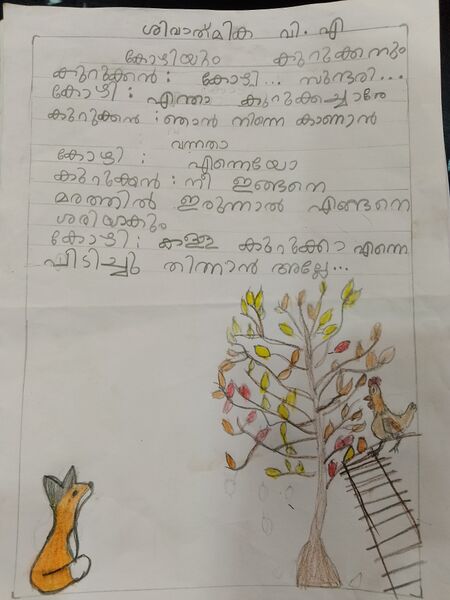 ശിവാത്മിക വി. എ
കോഴിയും കുറുക്കനും
കുറുക്കൻ : കോഴി... സുന്ദരി...
കോഴി : എന്താ കുറുക്കച്ചാരെ
കുറുക്കൻ : ഞാൻ നിന്നെ കാണാൻ
വന്നതാ
കോഴി : എന്നെയോ
കുറുക്കൻ : നീ ഇങ്ങനെ
മരത്തിൽ ഇരുന്നാൽ എങ്ങനെ
ശരിയാകും
കോഴി : കള്ള കുറുക്കാ എന്നെ
പിടിച്ചു തിന്നാൻ അല്ലേ...